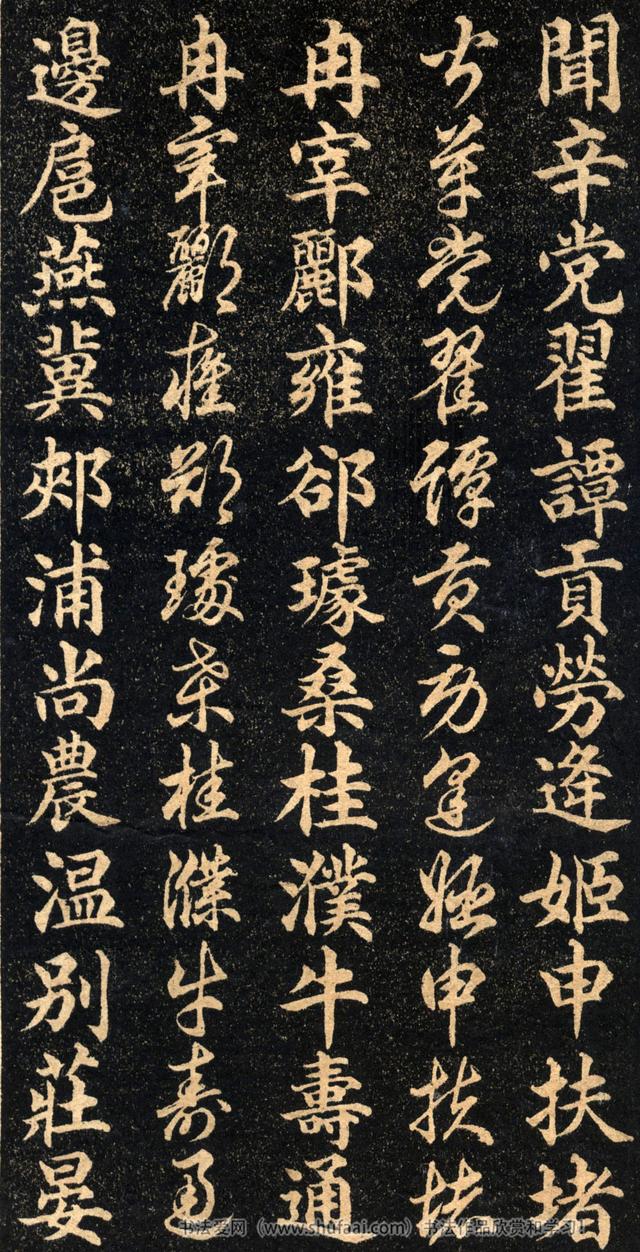 聞辛党翟譚貢勞逄姬申扶堵
聞辛党翟譚貢勞逄姬申扶堵
冉宰酈雍郤璩桑桂濮牛壽通
冉宰酈雍郤璩桑桂濮牛壽通
邊扈燕冀郟浦尚農温別莊晏
书法爱网（www.shufaai.com）书法作品欣赏和学习！